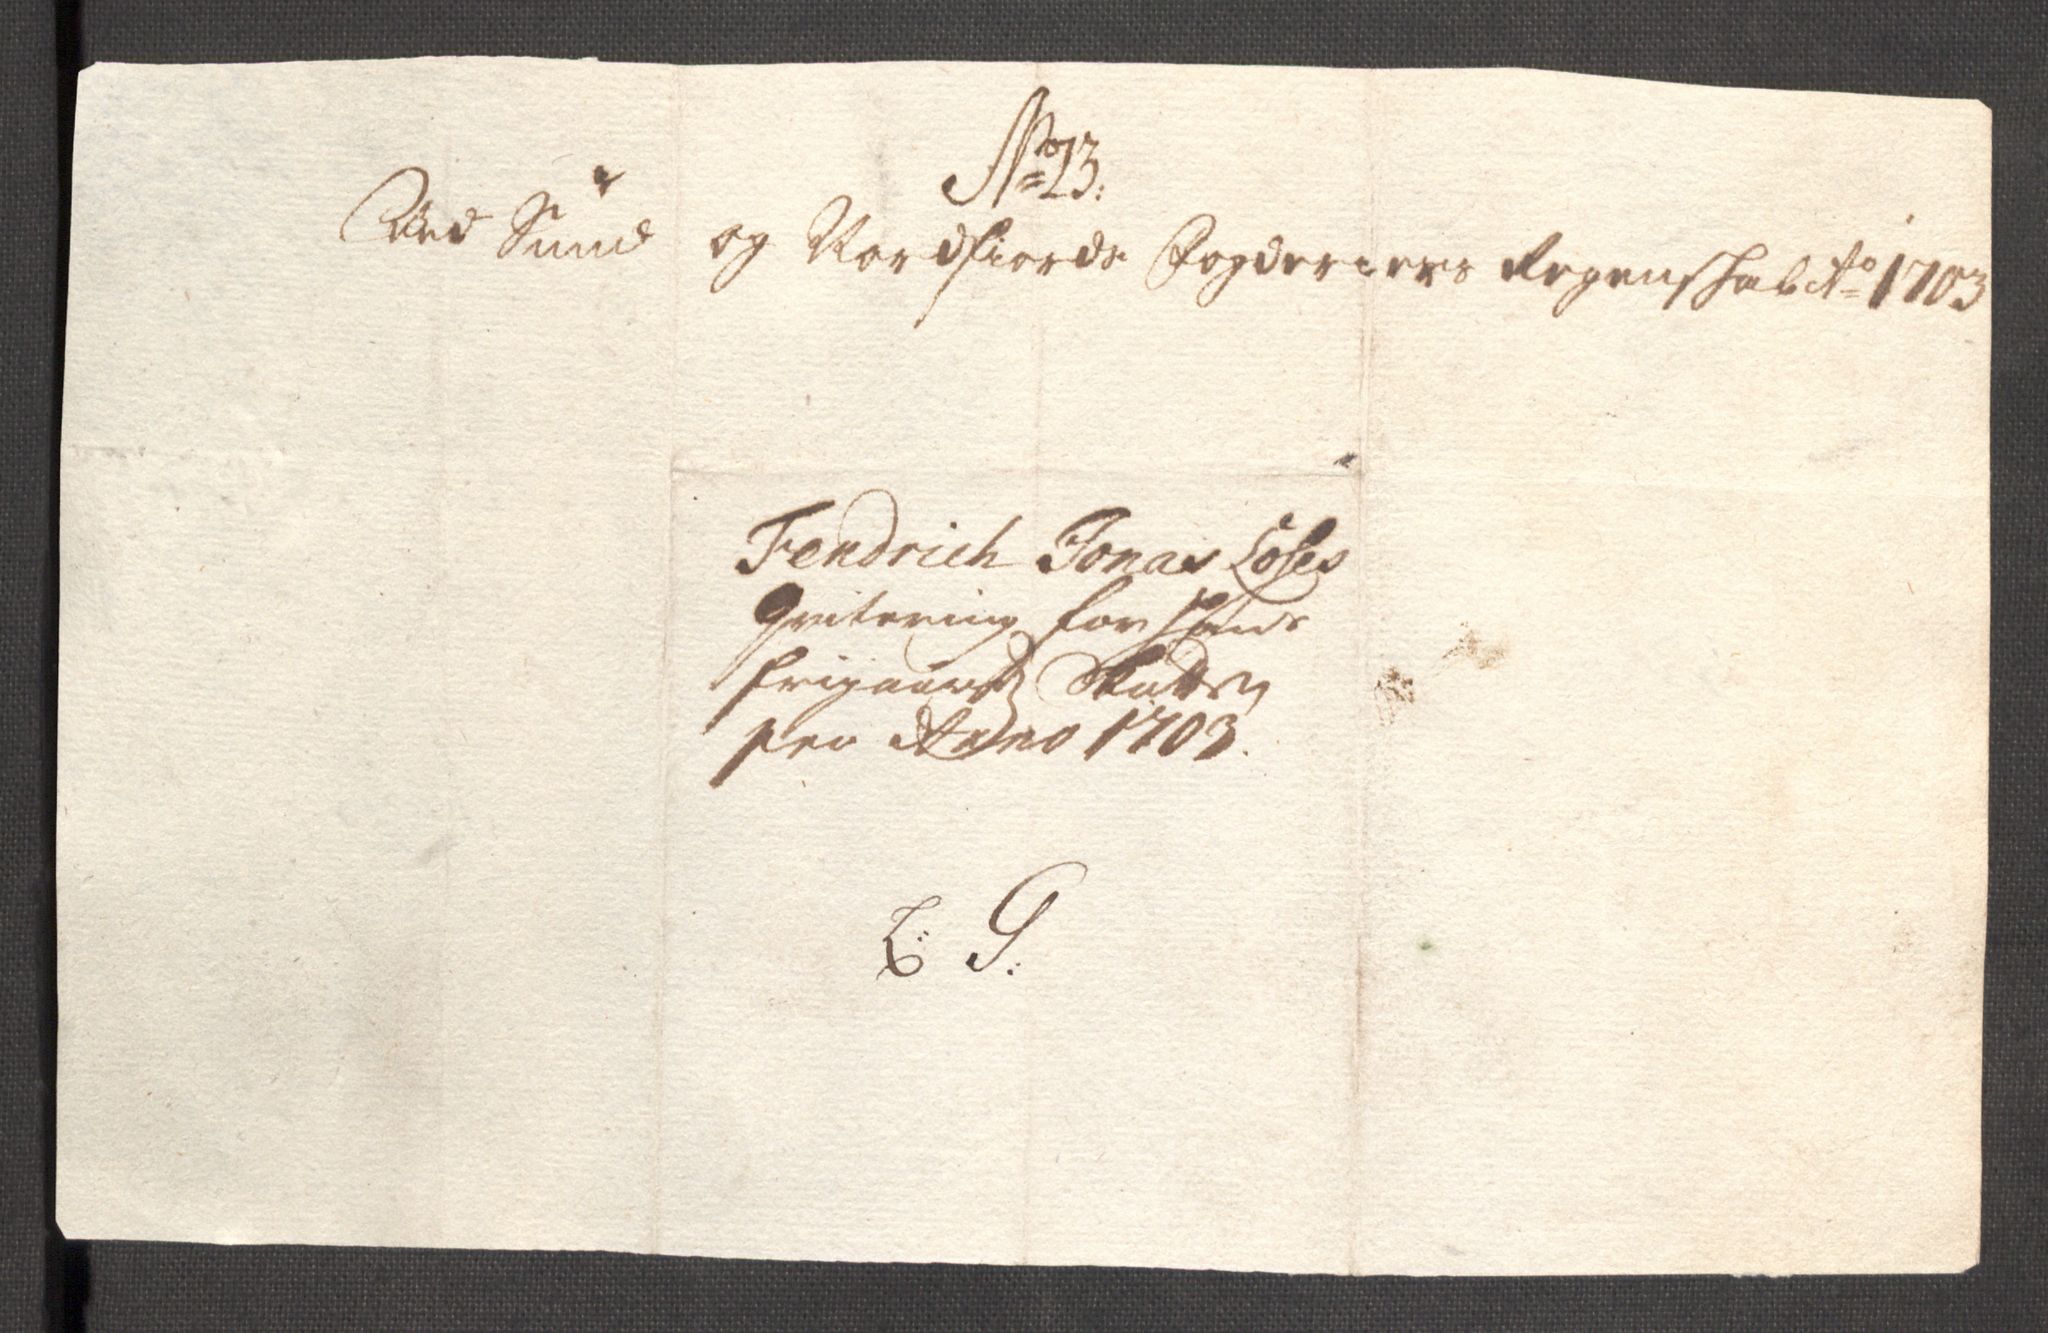 No 23:
Ved Sund og Nordfiords Fogderiers Regenskab Ao 1703
Fendrich Jonas Löses
Qvitering for hans
frigaards Skatter
pro Anno 1703.
L: G: